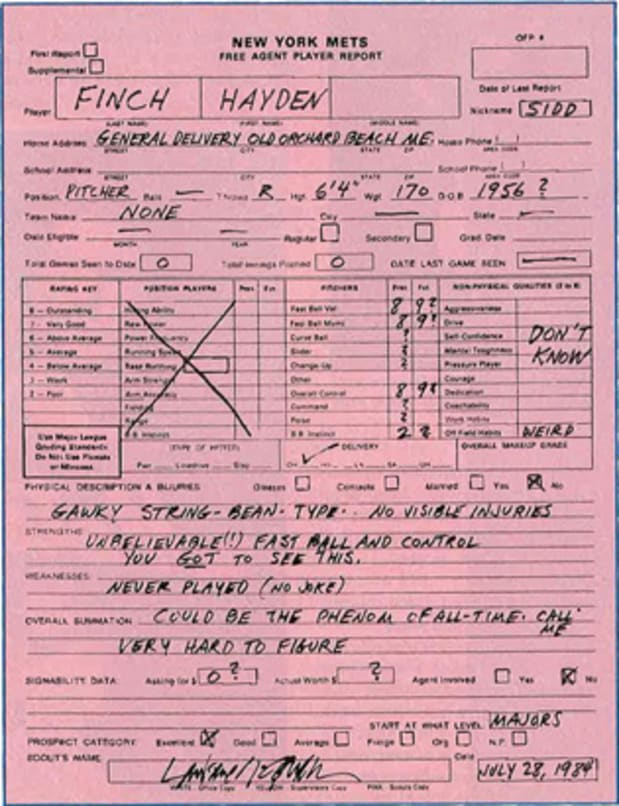 NEW YORK METS
FREE AGENT PLAYER REPORT
OFP #
First Report
Supplemental
Date of Last Report
Player FINCH HAYDEN Nickname SIDD
(LAST NAME) (FIRST NAME) (MIDDLE NAME)
Home Address GENERAL DELIVERY OLD ORCHARD BEACH ME. Home Phone ( )
STREET CITY STATE ZIP AREA CODE
School Address School Phone ( )
STREET CITY STATE ZIP AREA CODE
Position PITCHER Bats — Throws R Hgt. 6'4" Wgt. 170 D.O.B. 1956 ?
Team Name NONE City — State —
Date Eligible — — Regular Secondary Grad. Date
MONTH YEAR
Total Games Seen to Date 0 Total Innings Pitched 0 DATE LAST GAME SEEN —
RATING KEY POSITION PLAYERS Pres. Fut. PITCHERS Pres. Fut. NON-PHYSICAL QUALITIES
8 — Outstanding Hitting Ability Fast Ball Vel. 8 9? Aggressiveness
7 — Very Good Raw Power Fast Ball Mvmt. 8 9? Drive
6 — Above Average Power Frequency Curve Ball ? Self-Confidence DON'T
5 — Average Running Speed Slider ? Mental Toughness KNOW
4 — Below Average Base Running Change-Up ? Pressure Player
3 — Work Arm Strength Other Courage
2 — Poor Arm Accuracy Overall Control 8 9? Dedication
Fielding Command ? Coachability
Range Poise ? Work Habits
B.B. Instinct B.B. Instinct 2 2 Off Field Habits WEIRD
Use Major League
Grading Standards
Do Not Use Pluses
or Minuses
(TYPE OF HITTER) DELIVERY OVERALL MAKEUP GRADE
PHYSICAL DESCRIPTION & INJURIES Glasses Contacts Married Yes No
GAWKY STRING-BEAN-TYPE.. NO VISIBLE INJURIES
STRENGTHS
UNBELIEVABLE(!) FAST BALL AND CONTROL
YOU GOT TO SEE THIS.
WEAKNESSES
NEVER PLAYED (NO JOKE)
OVERALL SUMMATION COULD BE THE PHENOM OF ALL-TIME. CALL ME
VERY HARD TO FIGURE
SIGNABILITY DATA: Asking for $ 0 ? Actual Worth $ ? Agent Involved Yes No
START AT WHAT LEVEL MAJORS
PROSPECT CATEGORY: Excellent Good Average Fringe Org. N.P.
SCOUT'S NAME Date JULY 28, 1984
WHITE - Office Copy YELLOW - Supervisors Copy PINK - Scouts Copy